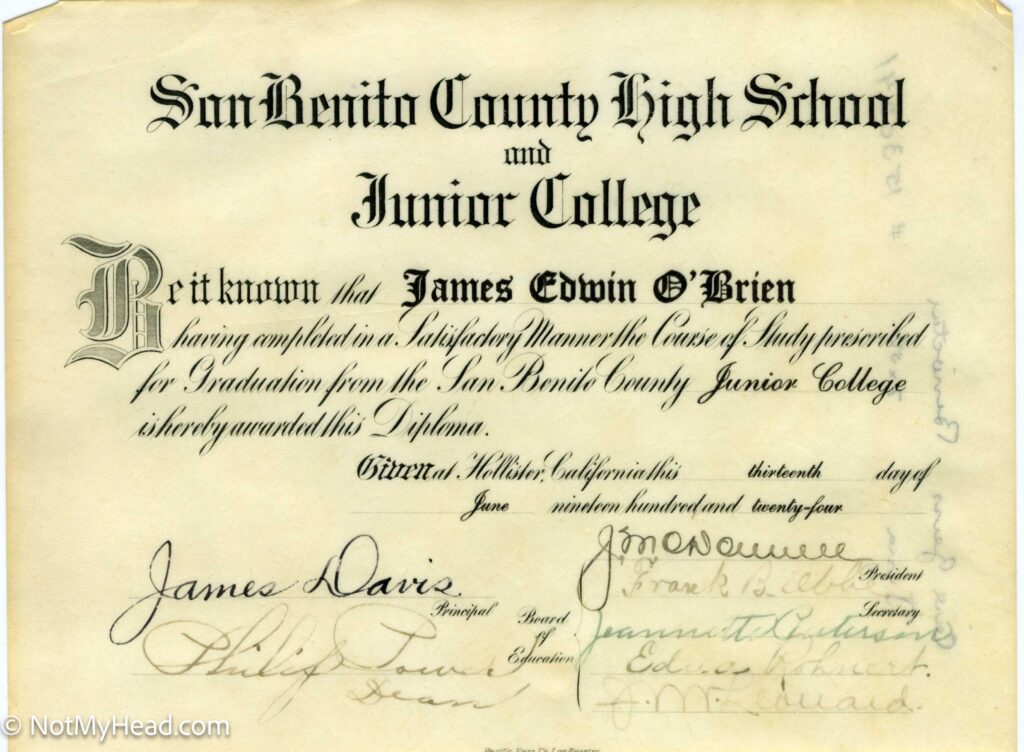 San Benito County High School
and
Junior College
Be it known that James Edwin O'Brien
having completed in a Satisfactory Manner the Course of Study prescribed
for Graduation from the San Benito County Junior College
is hereby awarded this Diploma.
Given at Hollister, California this thirteenth day of
June nineteen hundred and twenty-four
James Davis
Principal
Philip
Dean
Board
of
Education
President
Frank B.
Secretary
Jeannette Paterson
Rohnert.
J. M. Leonard.
© NotMyHead.com